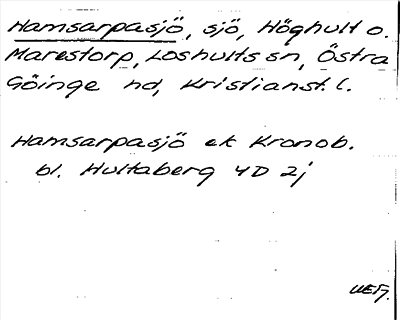 Hamsarpasjö, sjö, Höghult o.
Marestorp, Loshults sn, Östra
Göinge hd, Kristianst. l.
Hamsarpasjö ek Kronob.
bl. Hultaberg 4D 2j